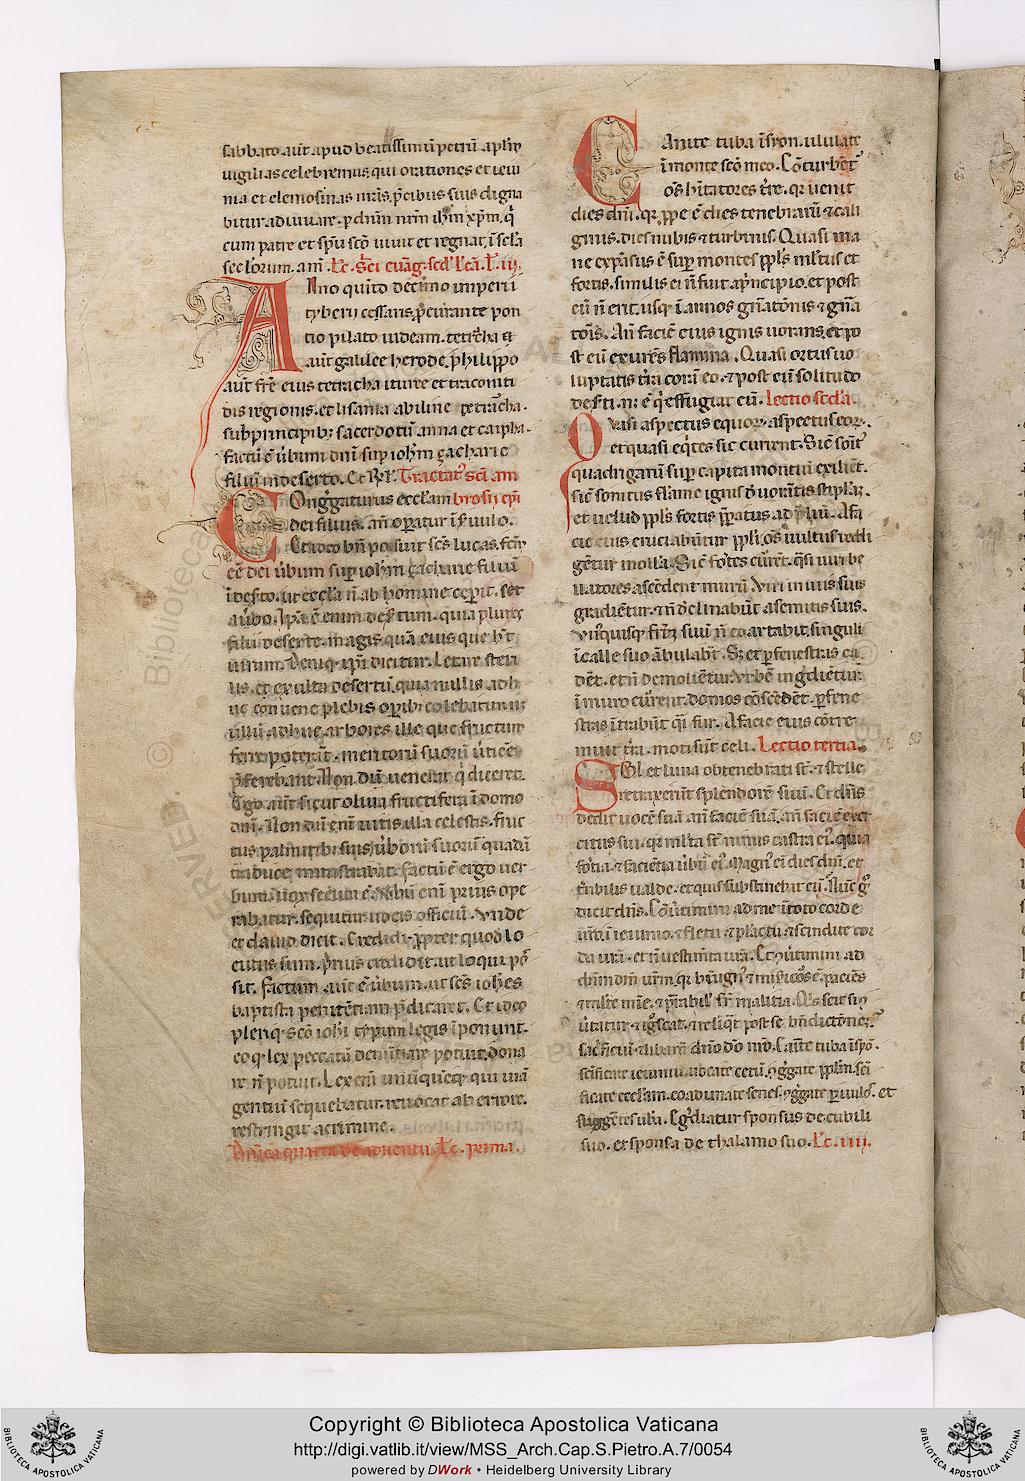 sabbato aut̄ apud beatissimū petrū apl̄m
uigilias celebremus, qui orationes et ieiu
nia et elemosinas nr̄as p̄cibus suis digna
bitur adiuuare. p̄ dn̄m nr̄m ih̄m xp̄m. q̄
cum patre et sp̄u sc̄o uiuit et regnat. ī sc̄la
sec̄lorum. am̄. Lc̄. Sc̄i euāg. scd̄ Lc̄ā. L̄. iij.
Anno quīto decimo imperii
tyberij cesaris, p̄curante pon
tio pilato iudeam. tetrc̄ha
aut̄ galilee herode. philippo
aut̄ frē eius tetracha iturie et traconiti
dis regionis. et lisania abiline tetrācha.
sub principib; sacerdotū anna et caipha.
factū ē ūbum dn̄i suꝑ ioh̄m zacharie
filiū in deserto. Et Rl̄. Tractat' sc̄i am
Congregaturus eccl̄am brosij ep̄i
dei filius. an̄ oꝑatur ī suulo.
Et ideo bn̄ posuit sc̄s lucas. fc̄m
eē dei ūbum suꝑ ioh̄m zacharie filiū
ī desto. ut eccl̄a n̄ ab homine cep̄it. set
a ūbo. Ip̄a ē enim des̄tum. quia plures
filii deserte. magis quā eius que h̄t
uirum. Deniq; ip̄i dicitur. Letare steri
lis. et exulta desertū, quia nullis adh
uc conuene plebis oꝑibꝰ colebatur
ferre poterāt. meritorū suorū ūticē
p̄ferebant. Non dū uenerat q̄ diceret.
Ego aut̄ sicut oliua fructifera ī domo
dn̄i. Non dū enī uitis illa celestis. fruc
tus palmitibꝰ suis ūborū suorū quadā
factū ē ergo uer
bum.
rabatur. sequitur uocis officiū. Vnde
et dauid dicit. Credidi ꝓpter quod lo
cutus sum. prius credidit. ut loqui pos
sit. factum aut̄ ē ūbum. ut sc̄s ioh̄es
baptista penitētiam p̄dicaret. Et ideo
pleriq; sc̄o ioh̄i typum legis īponunt.
eo q; lex peccatū denūtiare potuit. dona
re n̄ potuit. Lex enī unūquēq; qui uiā
gentiū sequebatur. reuocat ab errore.
restringit a crimine.
Dn̄ica quarta de aduentu. Lc̄. prima.
Canite tuba ī syon. ululate
ī monte sc̄o meo. Cōturbēt
oēs h̄itatores t̄re. qr̄ uenit
dies dn̄i. qr̄ ꝓpe ē dies tenebrarū ⁊ cali
ginis. dies nubis ⁊ turbinis. Quasi ma
ne expāsus ē suꝑ montes ppl̄s ml̄tus et
fortis. similis ei n̄ fuit a p̄ncipio. et post
eū n̄ erit. usq; ī annos gn̄atōnis ⁊ gn̄a
tōis. An̄ faciē eius ignis uorans. et po
st eū exurēs flamma. Quasi ortus uo
luptatis t̄ra corā eo. ⁊ post eū solitudo
des̄ti. n; ē q̄ effugiat eū. Lectio scd̄a.
Quasi aspectus equorꝝ aspectus eorꝝ.
et quasi eq̄tes sic current. Sic̄ sōit'
quadrigarū suꝑ capita montiū exiliēt.
sic̄ sonitus flāme ignis deuorātis stiplam.
et uelud ppl̄s fortis p̄paratus ad p̄liū. A fa
cie eius cruciabūtur ppl̄i. oēs uultus redi
gētur ī olla. Sic̄ fortes cūrēt. q̄si uiri be
llatores ascēdent murū. Viri in uiis suis
gradiētur. ⁊ n̄ declinabūt a semitis suis.
Vn̄quisq; fr̄m suū n̄ coartabit. singuli
ī calle suo ābulabt̄. S; et ꝑ fenestras ca
dēt. et n̄ demoliētur. Vrbē ingdiētur.
ī muro cūrent. domos cōscēdēt. ꝑ fene
stras ītrabūt q̄i fur. A facie eius cōtre
muit t̄ra. moti sūt celi. Lectio tertia.
Sol et luna obtenebrati st̄. ⁊ stelle
retraxerūt splendorē suū. Et dn̄s
dedit uocē suā an̄ faciē suā. an̄ faciē exer
citus sui. qr̄ ml̄ta st̄ nimis castra eiꝰ. quia
fōtia. ⁊ faciētia ūbū eiꝰ. Magnꝰ eī dies dn̄i. et
t̄ribilis ualde. et quis sustinebit eū. Nūc g̊
dicit dn̄s. Cōūtimini ad me ī toto corde
ur̄o. ī ieiunio. ⁊ fletu. ⁊ plāctu. ⁊ scindite cor
da ur̄a. et n̄ uestimta ur̄a. Et ꝯūtimini ad
dn̄m dm̄ ur̄m. qr̄ bn̄ignꝰ ⁊ mis̄icōs ē. paciēs
⁊ multe mīe. ⁊ p̄stabil' sr̄ malitia. Qis scit si
ūtatur. ⁊ ignoscat. ⁊ relinq̄t post se bn̄dictōnez.
sac̄ficiū ⁊ libam̄ dn̄o dō nr̄o. Canite tuba ī syō.
sc̄ificate ieiuniū. uocate cetū. ꝯg̅gate ppl̄m. sc̄i
ficate eccl̄am. coadunate senes. ꝯg̅gate ꝑuulos. et
suggētes ubā. Egrediatur sponsus de cubili
suo. et sponsa de thalamo suo. Lc̄. iiii.
Copyright © Biblioteca Apostolica Vaticana
http://digi.vatlib.it/view/MSS_Arch.Cap.S.Pietro.A.7/0054
powered by DWork • Heidelberg University Library
BIBLIOTECA APOSTOLICA VATICANA
BIBLIOTECA APOSTOLICA VATICANA